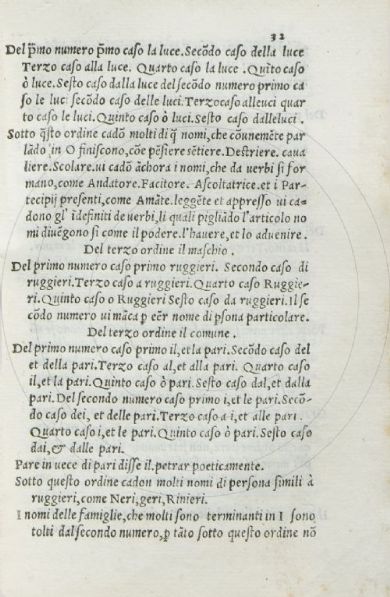 32
Del p̄mo numero p̄mo caso la luce. Secōdo caso della luce
Terzo caso alla luce. Quarto caso la luce. Quīto caso
ò luce. Sesto caso dalla luce del secōdo numero primo ca
so le luci secōdo caso delle luci. Terzo caso alle luci quar
to caso le luci. Quinto caso ò luci. Sesto caso dalle luci.
Sotto q̄sto ordine cadō molti di q̄ nomi, che cōunemēte par
lādo in O finiscono, cōe pēsiere sētiere. Destriere. caua
liere. Scolare. ui cadō āchora i nomi, che da uerbi si for
mano, come Andatore. Facitore. Ascoltatrice. et i Par-
tecipij presenti, come Amāte. leggēte et appresso ui ca-
dono gl' īdefiniti de uerbi, li quali pigliādo l'articolo no
mi diuēgono sì come il podere. l'hauere, et lo aduenire.
Del terzo ordine il maschio.
Del primo numero caso primo ruggieri. Secondo caso di
ruggieri. Terzo caso a ruggieri. Quarto caso Ruggie-
ri. Quinto caso o Ruggieri Sesto caso da ruggieri. Il se
cōdo numero ui māca ꝑ eēr nome di ꝑsona particolare.
Del terzo ordine il comune.
Del primo numero caso primo il, et la pari. Secōdo caso del
et della pari. Terzo caso al, et alla pari. Quarto caso
il, et la pari. Quinto caso ò pari. Sesto caso dal, et dalla
pari. Del secondo numero caso primo i, et le pari. Secō-
do caso dei, et delle pari. Terzo caso a i, et alle pari.
Quarto caso i, et le pari. Quinto caso ò pari. Sesto caso
dai, & dalle pari.
Pare in uece di pari disse il. petrar poeticamente.
Sotto questo ordine cadon molti nomi di persona simili à
ruggieri, come Neri, geri, Rinieri.
I nomi delle famiglie, che molti sono terminanti in I sono
tolti dal secondo numero, ꝑ tāto sotto questo ordine nō